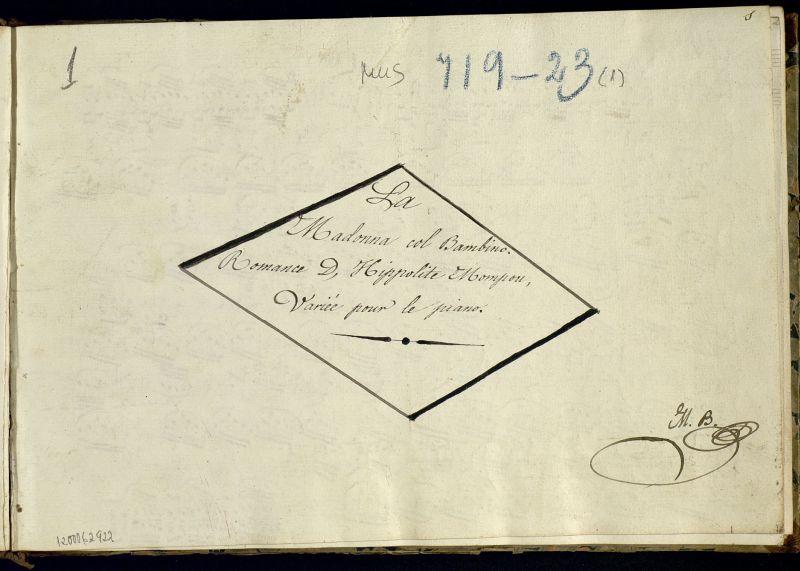 1
Mus 719-23 (1)
La
Madonna col Bambino.
Romance D, Hippolite Mompou,
Variée pour le piano.
M. B.